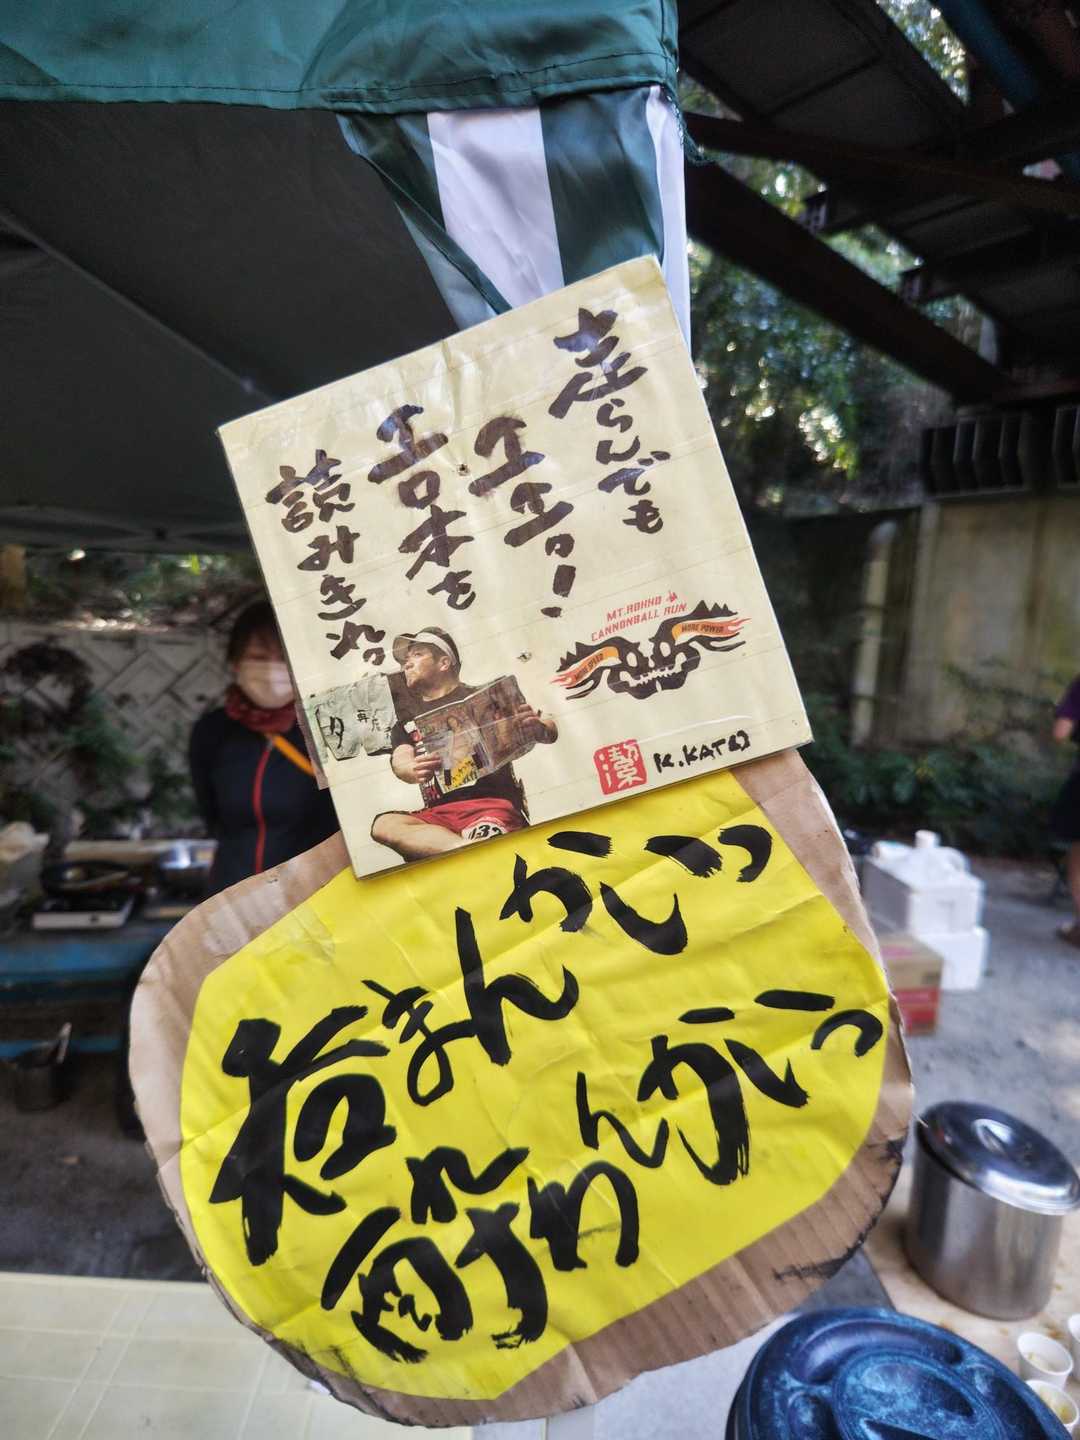 走らんでも
エエ!
エロ本を
読みきれっ
MT.ROKKO
CANNONBALL RUN
MORE SPEED
MORE POWER
潔
呑まんかいっ
酔わんかいっ